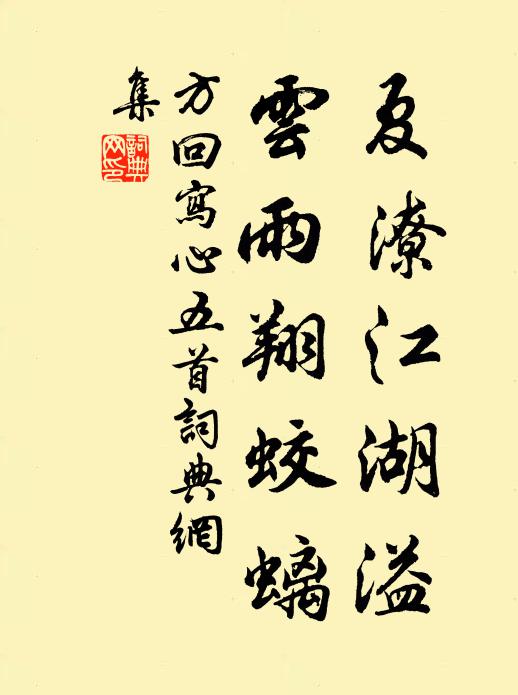 夏潦江湖溢
雲雨翔蛟螭
方回寫心五首詞典網
集
詞典網印